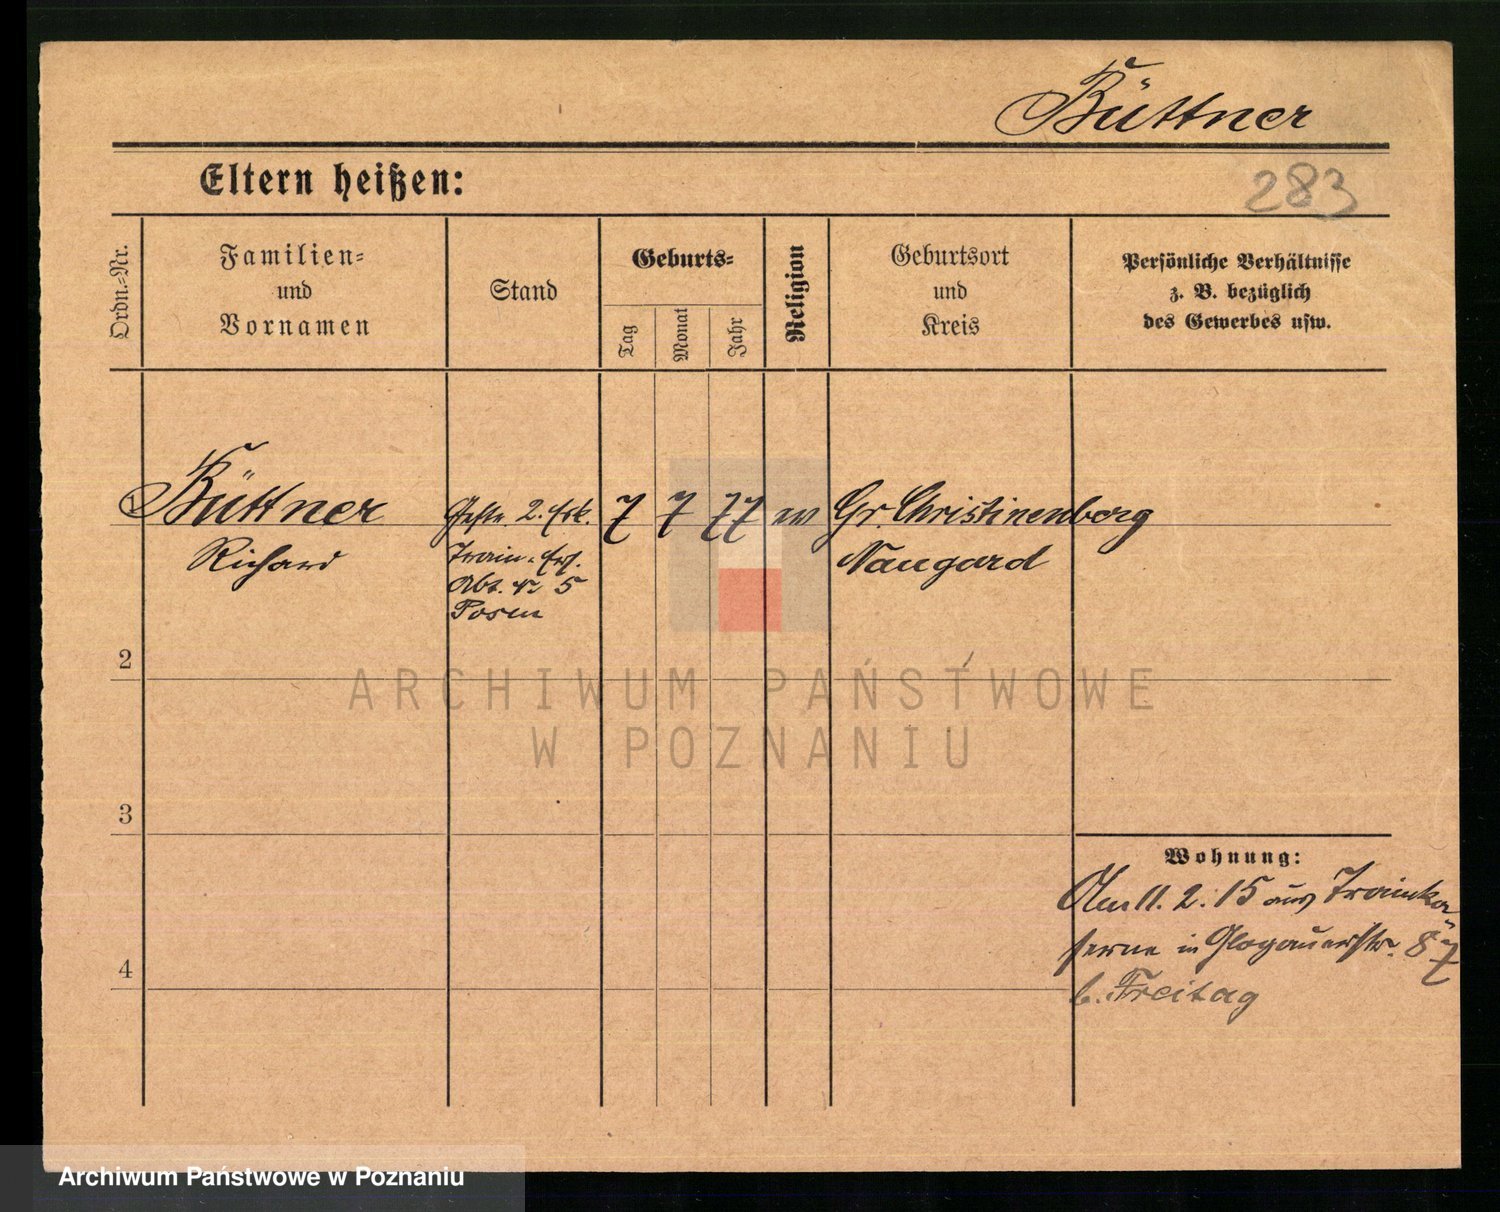 Büttner
Eltern heißen:
283
Ordn.-Nr.
Familien-
und
Vornamen
Stand
Geburts-
Tag
Monat
Jahr
Religion
Geburtsort
und
Kreis
Persönliche Verhältnisse
z. B. bezüglich
des Gewerbes usw.
1 Büttner 2. 7 7 77 ev Gr. Christinenberg
Richard Train-Ers. Naugard
Abt. No 5
Posen
2
3
4
Wohnung:
Am 11. 2. 15 aus Trainka-
serne in Glogauerstr. 87
b. Freitag
ARCHIWUM PAŃSTWOWE
W POZNANIU
Archiwum Państwowe w Poznaniu